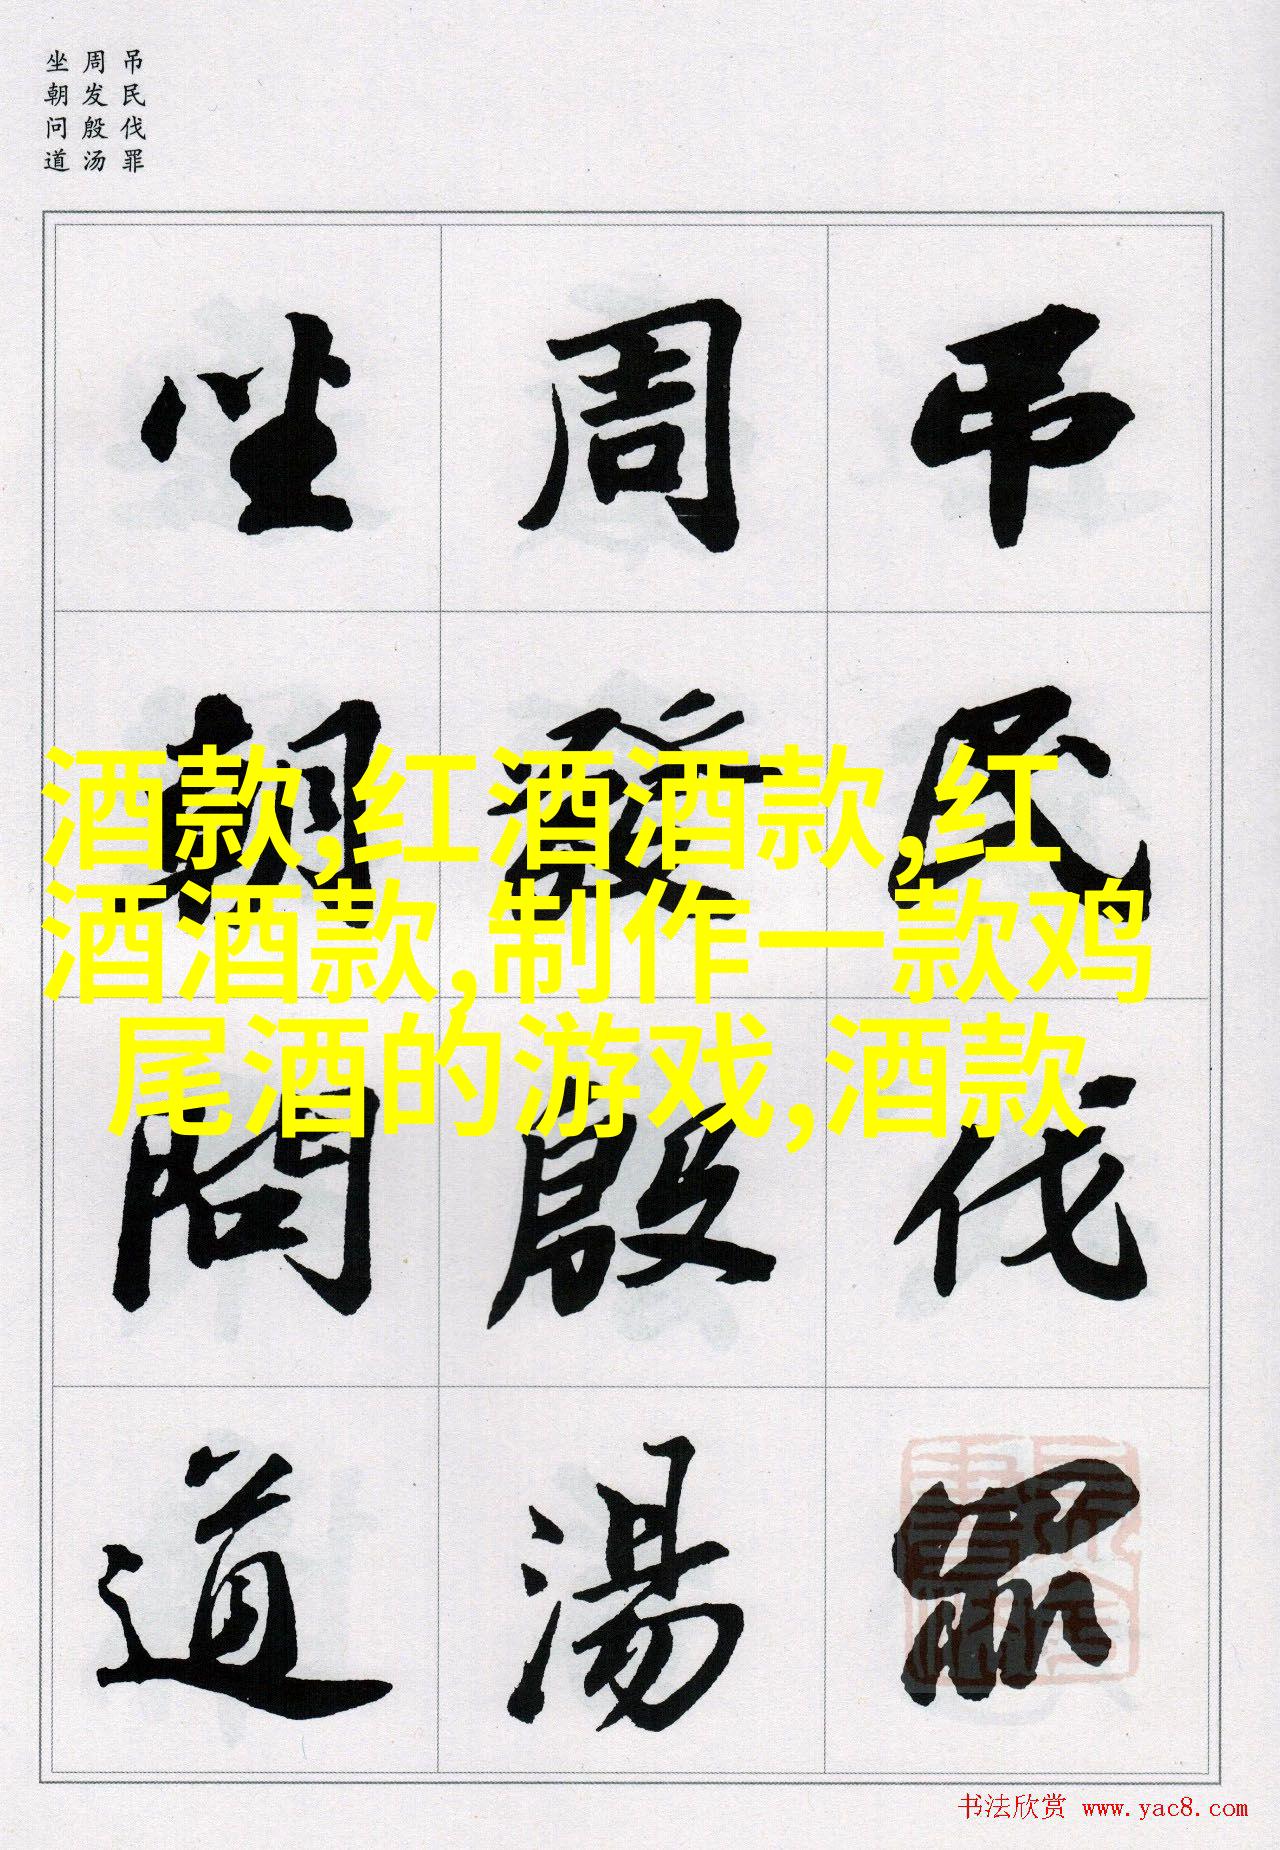 吊民伐罪
周发殷汤
坐朝问道
吊民伐罪
周發殷湯
坐朝問道
酒款,红酒酒款,红
酒酒款,制作一款鸡
尾酒的游戏,酒款
书法欣赏 www.yac8.com